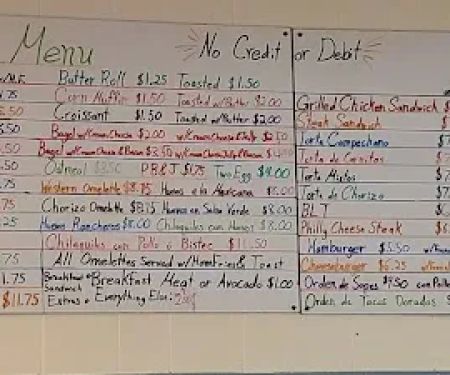 Menu
No Credit or Debit
Butter Roll $1.25 Toasted $1.50
Corn Muffin $1.50 Toasted w/Butter $2.00
Croissant $1.50 Toasted w/Butter $2.00
Bagel w/Kream Cheese $2.00 w/Kream Cheese & Jelly $2.50
Bagel w/Kream Cheese & Bacon $3.50 w/Kream Cheese Jelly & Bacon $4.00
Oatmeal $3.50 P.B & J $1.75 Two Egg $4.00
Western Omelette $8.75 Huevos a la Mexicana $8.00
Chorizo Omelette $8.75 Huevos en Salsa Verde $8.00
Huevos Rancheros $8.00 Chilaquiles con Huevos $8.00
Chilaquiles con Pollo ó Bistec $11.50
All Omelettes Served w/Homefries & Toast
Breakfast Sandwich Extras
BreakFast Meat or Avocado $1.00
Everything Else:
$11.75
Grilled Chicken Sandwich $
Steak Sandwich $
Torta Campechano $
Torta de Carnitas $
Torta Mixtos $
Torta de Chorizo $
BLT
Philly Cheese Steak $
Hamburger $5.50
Cheeseburger $6.25
Orden de Sopes $9.50 con Pollo
Orden de Tacos Dorados $